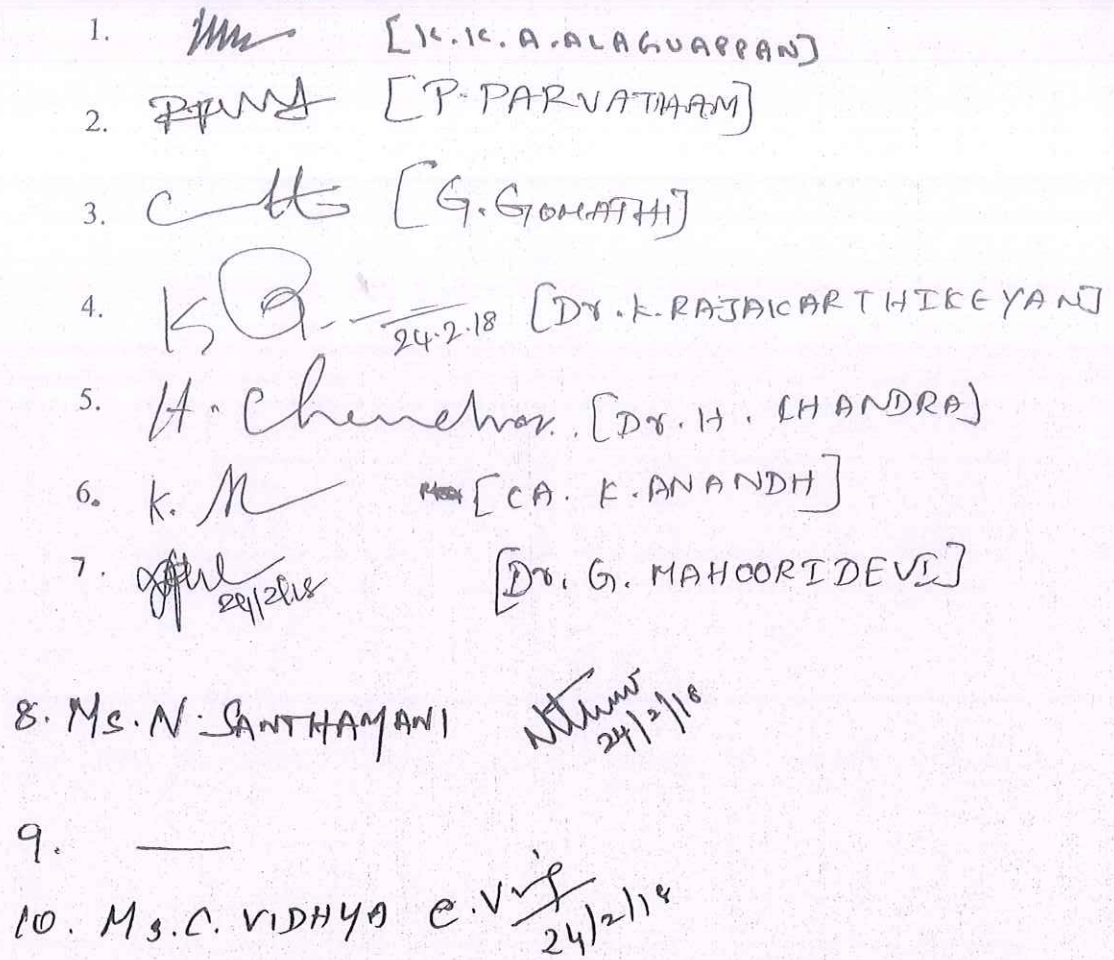 1. [K.K.A.ALAGUAPPAN]
2. [P.PARVATHAAM]
3. [G.GOMATHI]
4. 24.2.18 [Dr.K.RAJAKARTHIKEYAN]
5. H.Chandra. [Dr.H. CHANDRA]
6. K. [CA. K.ANANDH]
7. 24/2/18 [Dr. G. MAHOORIDEVI]
8. Ms.N.SANTHAMANI 24/2/18
9. —
10. Ms.C.VIDHYA C.V 24/2/18